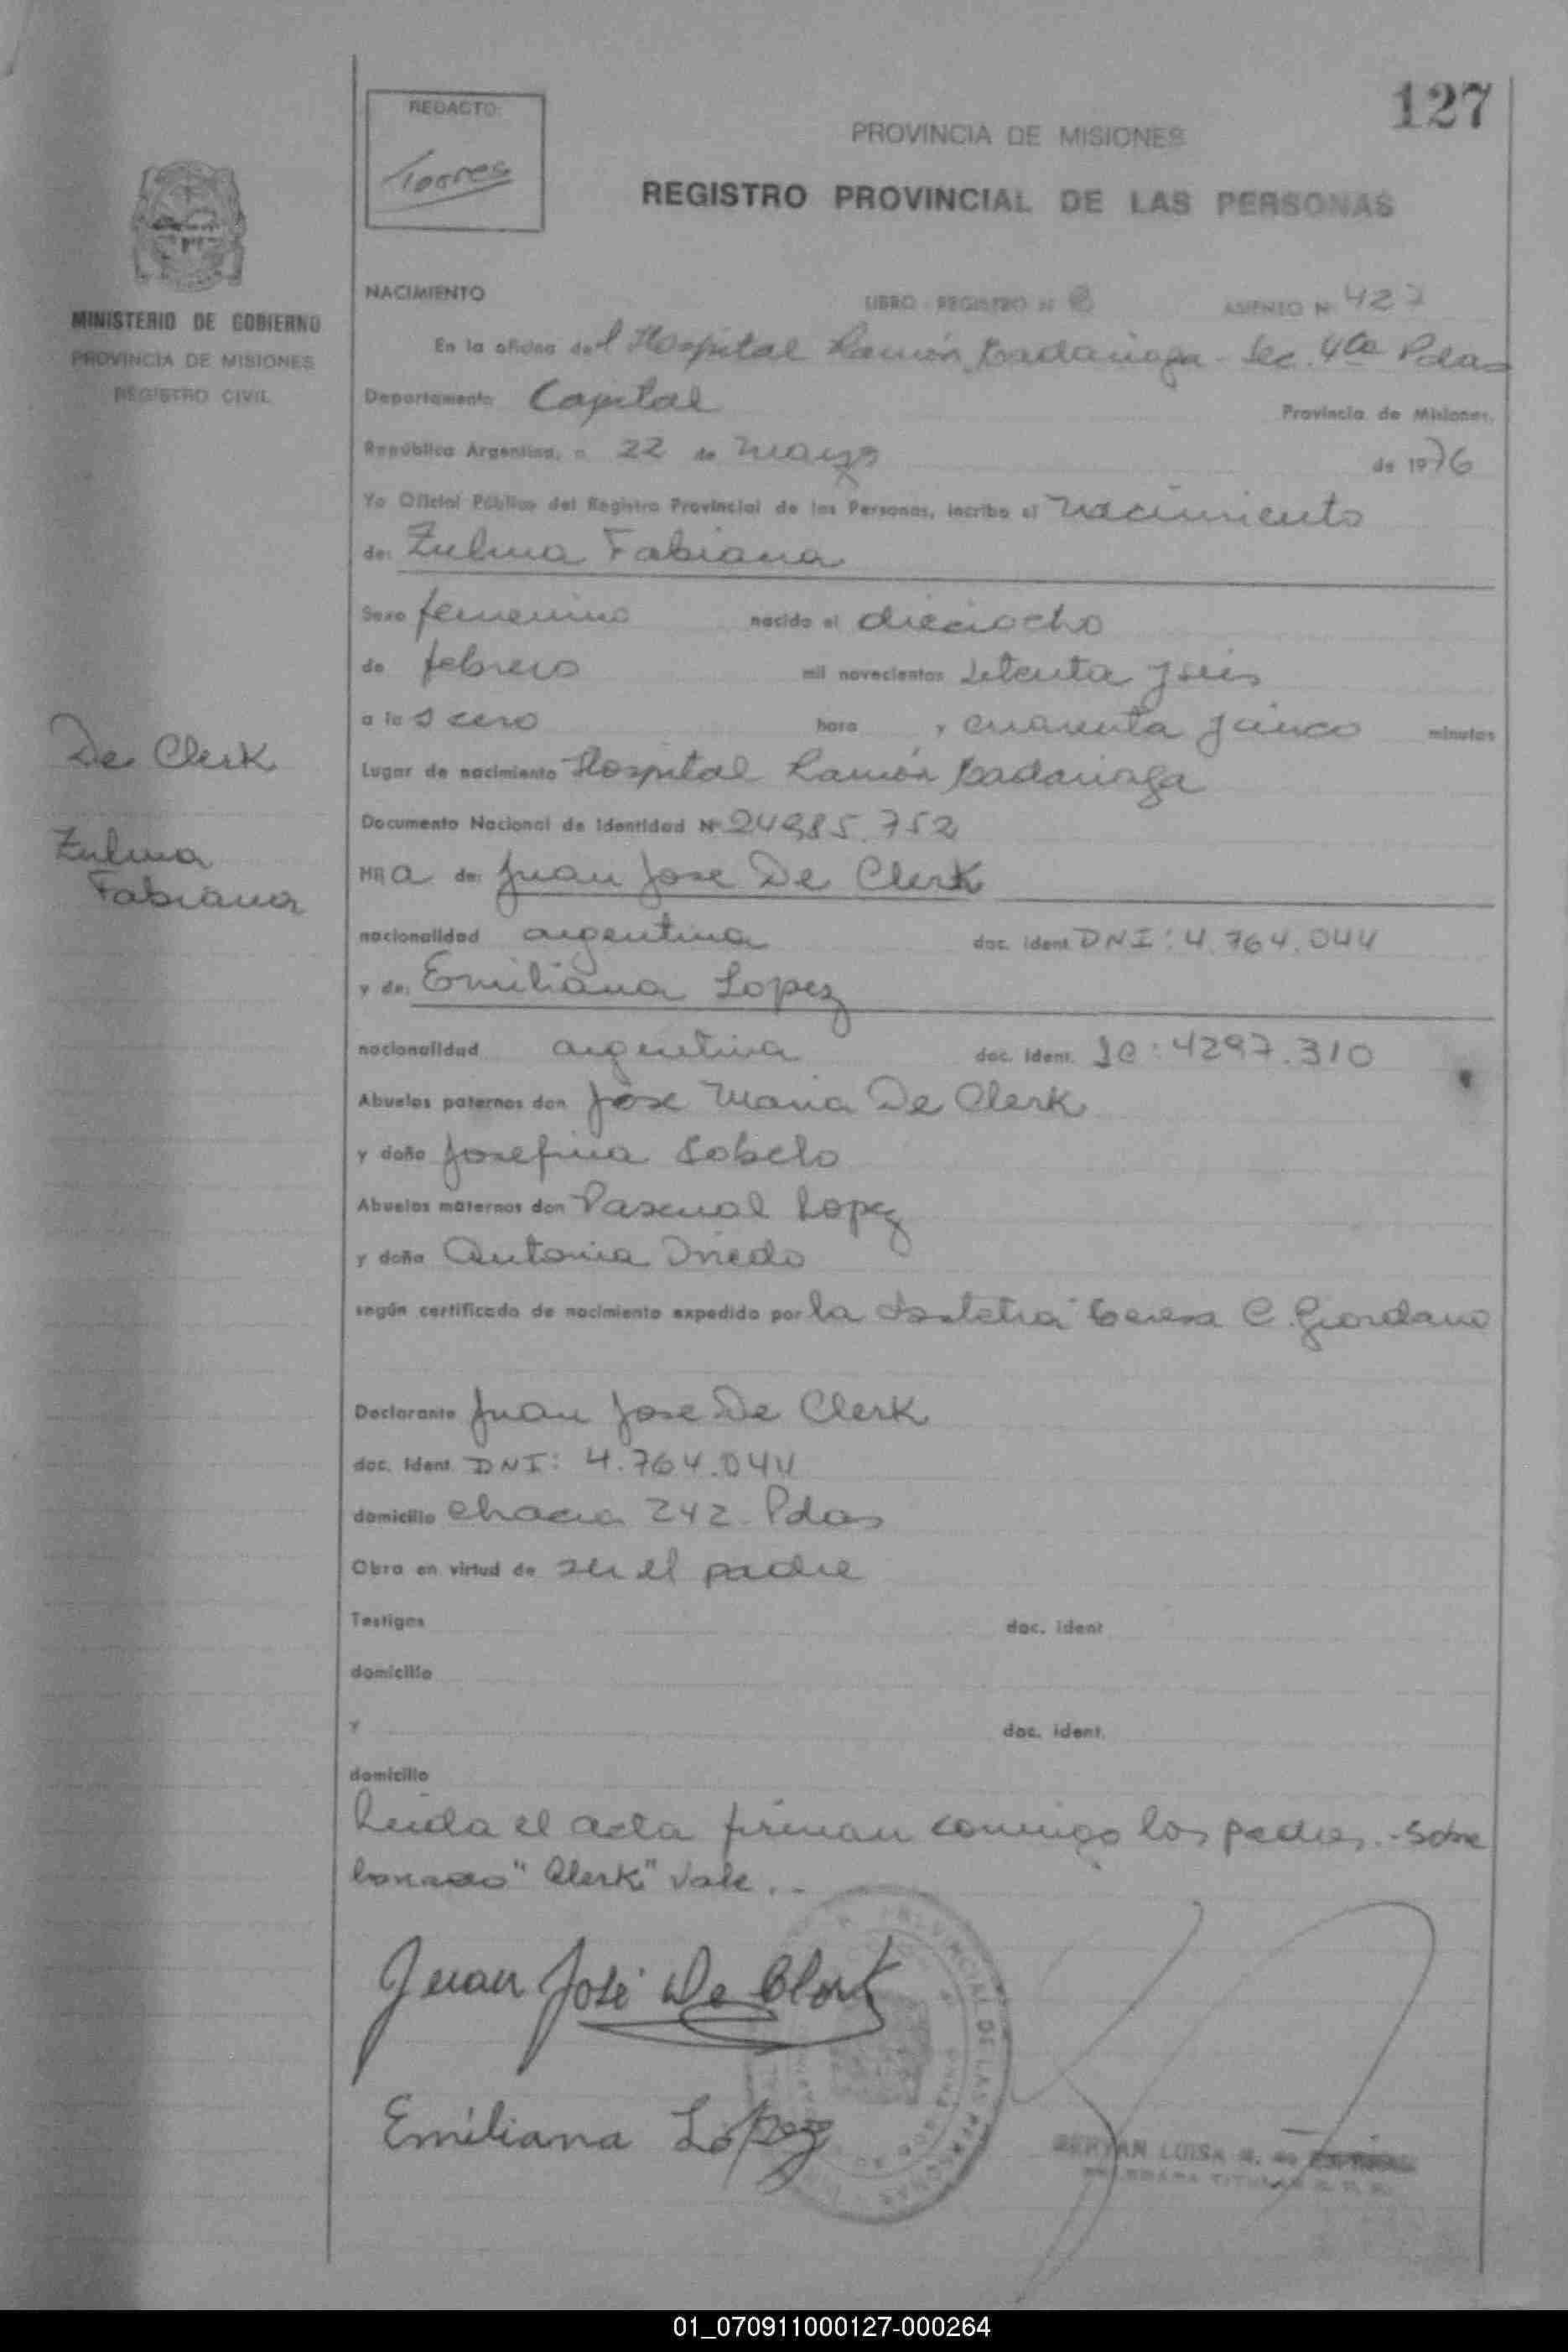 127
REDACTO:
Torres
PROVINCIA DE MISIONES
REGISTRO PROVINCIAL DE LAS PERSONAS
MINISTERIO DE GOBIERNO
PROVINCIA DE MISIONES
REGISTRO CIVIL
NACIMIENTO LIBRO REGISTRO Nº 8 ASIENTO Nº 427
En la oficina del Hospital Ramón Madariaga - Sec. 4ta Pdas
Departamento Capital Provincia de Misiones,
República Argentina, a 22 de Marzo de 1976
Yo Oficial Público del Registro Provincial de las Personas, inscribo el nacimiento
de: Zulma Fabiana
Sexo femenino nacido el dieciocho
de febrero mil novecientos setenta y seis
a las cero hora y cuarenta y cinco minutos
De Clerk
Zulma
Fabiana
Lugar de nacimiento Hospital Ramón Madariaga
Documento Nacional de Identidad Nº 24985.752
Hija de: Juan Jose De Clerk
nacionalidad argentina doc. ident. DNI: 4.764.044
y de: Emiliana Lopez
nacionalidad argentina doc. ident. LC: 4297.310
Abuelos paternos don Jose Maria De Clerk
y doña Josefina Sobelo
Abuelos maternos don Pascual Lopez
y doña Antonia Oviedo
según certificado de nacimiento expedido por la obstetra Teresa C. Giordano
Declarante Juan Jose De Clerk
doc. Ident. DNI: 4.764.044
domicilio chacra 242 - Pdas
Obra en virtud de ser el padre
Testigos doc. ident
domicilio
y doc. ident.
domicilio
Leida el acta firman conmigo los padres. - Sobre
borrado "Clerk" Vale. -
Juan José De Clerk
Emiliana López
BERTAN LUISA
01_070911000127-000264